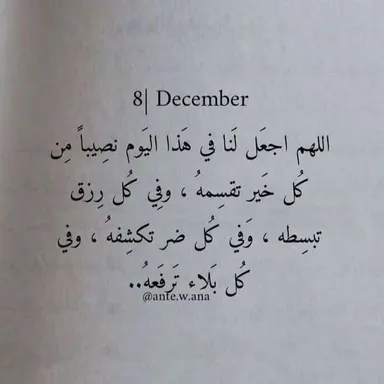 8| December
اللهم اجعَل لَنا في هَذا اليَوم نصِيباً مِن
كُل خَير تقسِمهُ ، وفِي كُل رِزق
تبسِطه ، وَفي كُل ضر تكشِفهُ ، وفي
كُل بَلاء تَرفَعهُ..
@ante.w.ana